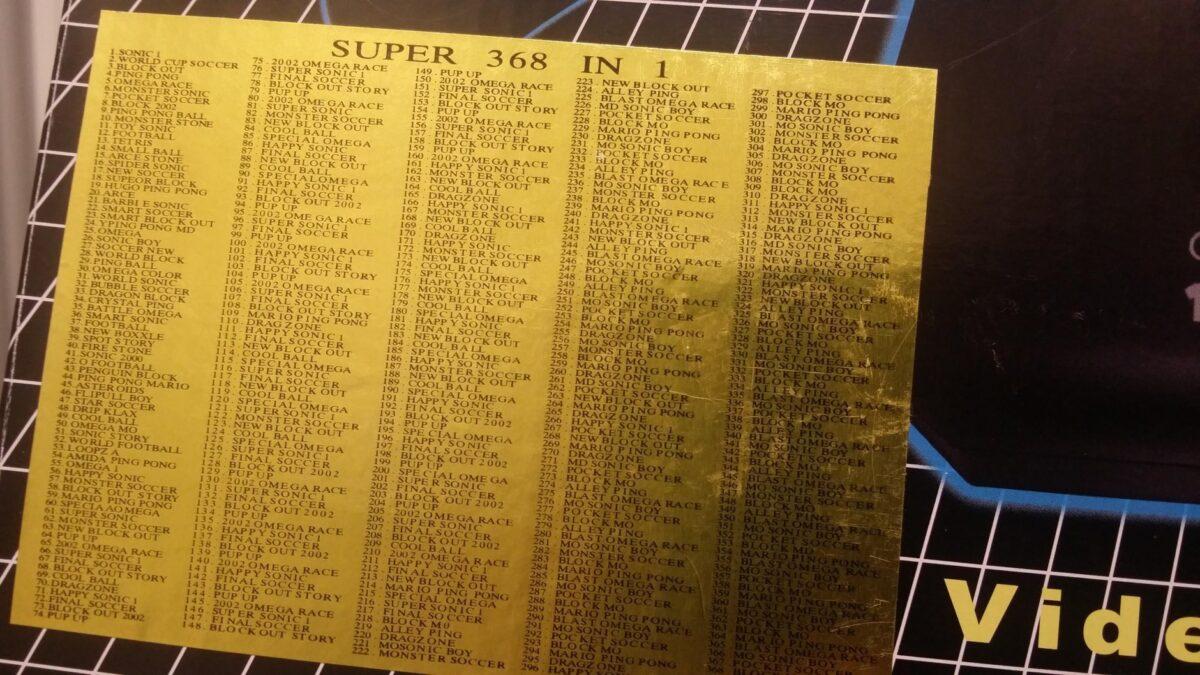 SUPER 368 IN 1
1. SONIC 1
2. WORLD CUP SOCCER
3. BLOCK OUT
4. PING PONG
5. OMEGA RACE
6. MONSTER SONIC
7. POCKET SOCCER
8. BLOCK 2002
9. PING PONG BALL
10. MONSTER STONE
11. TOY SONIC
12. FOOTBALL
13. TETRIS
14. SMALL BALL
15. ARCE STONE
16. SPIDER SONIC
17. NEW SOCCER
18. SUPEOR BLOCK
19. HUGO PING PONG
20. ARCE
21. BARBIE SONIC
22. SMART SOCCER
23. SMART BLOCK OUT
24. YPING PONG MD
25. OMEGA
26. SONIC BOY
27. SOCCER NEW
28. WORLD BLOCK
29. PING BALL
30. OMEGA COLOR
31. WORLD SONIC
32. BUBBLE SOCCER
33. DRAGON BLOCK
34. CRYSTAL PING
35. BATTLE OMEGA
36. SMART SONIC
37. FOOTBALL
38. NEW BOXXLE
39. SPOT STORY
40. FIRE STONE
41. SONIC 2000
42. O FOOTBALL
43. PENGUIN BLOCK
44. PING PONG MARIO
45. ASTEROIDS
46. FLIPULL BOY
47. STAR SOCCER
48. DRIP KLAX
49. COOL BALL
50. OMEGA MO
51. SONIC STORY
52. WORLD FOOTBALL
53. LOOPZ A
54. AMIDA PING PONG
55. OMEGA 1
56. HAPPY SONIC
57. MONSTER SOCCER
58. BLOCK OUT STORY
59. MARIO PING PONG
60. SPECLA AOMEGA
61. SUPER SONIC
62. MONSTER SOCCER
63. NEW BLOCK OUT
64. PUP UP
65. 2002 OMEGA RACE
66. SUPER SONIC 1
67. FINAL SOCCER
68. BLOCK OUT STORY
69. COOL BALL
70. DRAGZONE
71. HAPPY SONIC 1
72. FINAL SOCCER
73. BLOCK OUT 2002
74. PUP UP
75. 2002 OMEGA RACE
76. SUPER SONIC 1
77. FINAL SOCCER
78. BLOCK OUT STORY
79. PUP UP
80. 2002 OMEGA RACE
81. SUPER SONIC 1
82. MONSTER SOCCER
83. NEW BLOCK OUT
84. COOL BALL
85. SPECIAL OMEGA
86. HAPPY SONIC
87. FINAL SOCCER
88. NEW BLOCK OUT
89. COOL BALL
90. SPECIAL OMEGA
91. HAPPY SONIC 1
92. FINAL SOCCER
93. BLOCK OUT 2002
94. PUP UP
95. 2002 OMEGA RACE
96. SUPER SONIC 1
97. FINAL SOCCER
99. PUP UP
100. 2002 OMEGA RACE
101. HAPPY SONIC 1
102. FINAL SOCCER
103. BLOCK OUT STORY
104. PUP UP
105. 2002 OMEGA RACE
106. SUPER SONIC 1
107. FINAL SOCCER
108. BLOCK OUT STORY
109. MARIO PING PONG
110. DRAGZONE
111. HAPPY SONIC 1
112. FINAL SOCCER
113. NEW BLOCK OUT
114. COOL BALL
115. SPECIAL OMEGA
116. SUPER SONIC 1
117. FINAL SOCCER
118. NEW BLOCK OUT
119. COOL BALL
120. SPECIAL OMEGA
121. SUPER SONIC 1
122. MONSTER SOCCER
123. NEW BLOCK OUT
124. COOL BALL
125. SPECIAL OMEGA
126. SUPER SONIC 1
127. FINAL SOCCER
128. BLOCK OUT 2002
129. PUP UP
130. 2002 OMEGA RACE
131. SUPER SONIC 1
132. FINAL SOCCER
133. BLOCK OUT 2002
134. PUP UP
135. 2002 OMEGA RACE
136. HAPPY SONIC 1
137. FINAL SOCCER
138. BLOCK OUT 2002
139. PUP UP
140. 2002 OMEGA RACE
141. HAPPY SONIC
142. FINAL SOCCER
143. BLOCK OUT STORY
144. PUP UP
145. 2002 OMEGA RACE
146. SUPER SONIC 1
147. FINAL SOCCER
148. BLOCK OUT STORY
149. PUP UP
150. 2002 OMEGA RACE
151. SUPER SONIC 1
152. FINAL SOCCER
153. BLOCK OUT STORY
154. PUP UP
155. 2002 OMEGA RACE
156. SUPER SONIC 1
157. FINAL SOCCER
158. BLOCK OUT STORY
159. PUP UP
160. 2002 OMEGA RACE
161. HAPPY SONIC 1
162. MONSTER SOCCER
163. NEW BLOCK OUT
164. COOL BALL
165. DRAGZONE
166. HAPPY SONIC 1
167. MONSTER SOCCER
168. NEW BLOCK OUT
169. COOL BALL
170. DRAGZONE
171. HAPPY SONIC
172. MONSTER SOCCER
173. NEW BLOCK OUT
174. COOL BALL
175. SPECIAL OMEGA
176. HAPPY SONIC 1
177. MONSTER SOCCER
178. NEW BLOCK OUT
179. COOL BALL
180. SPECIAL OMEGA
181. HAPPY SONIC
182. FINAL SOCCER
183. NEW BLOCK OUT
184. COOL BALL
185. SPECIAL OMEGA
186. HAPPY SONIC
187. MONSTER SOCCER
188. NEW BLOCK OUT
189. COOL BALL
190. SPECIAL OMEGA
191. HAPPY SONIC
192. FINAL SOCCER
193. BLOCK OUT 2002
194. PUP UP
195. SPECIAL OMEGA
196. HAPPY SONIC
197. FINAL SOCCER
198. BLOCK OUT 2002
199. PUP UP
200. SPECIAL OMEGA
201. SUPER SONIC
202. FINAL SOCCER
203. BLOCK OUT 2002
204. PUP UP
205. 2002 OMEGA RACE
206. SUPER SONIC
207. FINAL SOCCER
208. BLOCK OUT 2002
209. COOL BALL
210. 2002 OMEGA RACE
211. HAPPY SONIC 1
212. FINAL SOCCER
213. NEW BLOCK OUT
214. MARIO PING PONG
215. SPECIAL OMEGA
216. SUPER SONIC
217. FINAL SOCCER
218. BLOCK MO
219. ALLEY PING
220. DRAGZONE
221. MOSONIC BOY
222. MONSTER SOCCER
223. NEW BLOCK OUT
224. ALLEY PING
225. BLAST OMEGA RACE
226. MD SONIC BOY
227. POCKET SOCCER
228. BLOCK MO
229. MARIO PING PONG
230. DRAGZONE
231. MO SONIC BOY
232. POCKET SOCCER
233. BLOCK MO
234. ALLEY PING
235. BLAST OMEGA RACE
236. MO SONIC BOY
237. MONSTER SOCCER
238. BLOCK MO
239. MARIO PING PONG
240. DRAGZONE
241. HAPPY SONIC 1
242. MONSTER SOCCER
243. NEW BLOCK OUT
244. ALLEY PING
245. BLAST OMEGA RACE
246. MO SONIC BOY
247. POCKET SOCCER
248. BLOCK MO
249. ALLEY PING
250. BLAST OMEGA RACE
251. MO SONIC BOY
252. POCKET SOCCER
253. BLOCK MO
254. MARIO PING PONG
255. DRAGZONE
256. MO SONIC BOY
257. MONSTER SOCCER
258. BLOCK MO
259. MARIO PING PONG
260. DRAGZONE
261. MD SONIC BOY
262. POCKET SOCCER
263. NEW BLOCK OUT
264. MARIO PING PONG
265. DRAGZONE
266. HAPPY SONIC 1
267. POCKET SOCCER
268. NEW BLOCK OUT
269. MARIO PING PONG
270. DRAGZONE
271. MD SONIC BOY
272. POCKET SOCCER
273. BLOCK MO
274. ALLEY PING
275. BLAST OMEGA RACE
276. MO SONIC BOY
277. POCKET SOCCER
278. BLOCK MO
279. ALLEY PING
280. BLAST OMEGA RACE
281. MO SONIC BOY
282. MONSTER SOCCER
283. BLOCK MO
284. MARIO PING PONG
285. BLAST OMEGA RACE
286. MO SONIC BOY
287. POCKET SOCCER
288. BLOCK MO
289. MARIO PING PONG
290. BLAST OMEGA RACE
291. MO SONIC BOY
292. POCKET SOCCER
293. BLOCK MO
294. MARIO PING PONG
295. DRAGZONE
296. HAPPY SONIC
297. POCKET SOCCER
298. BLOCK MO
299. MARIO PING PONG
300. DRAGZONE
301. MO SONIC BOY
302. MONSTER SOCCER
303. BLOCK MO
304. MARIO PING PONG
305. DRAGZONE
306. MO SONIC BOY
307. MONSTER SOCCER
308. BLOCK MO
309. BLOCK MO
310. DRAGZONE
311. HAPPY SONIC 1
312. MONSTER SOCCER
313. NEW BLOCK OUT
314. MARIO PING PONG
315. DRAGZONE
316. MD SONIC BOY
317. MONSTER SOCCER
318. NEW BLOCK OUT
319. MARIO PING PONG
320. DRAGZONE
321. HAPPY SONIC
322. MONSTER SOCCER
323. NEW BLOCK OUT
324. ALLEY PING
325. BLAST OMEGA RACE
326. MO SONIC BOY
327. POCKET SOCCER
328. BLOCK MO
329. ALLEY PING
330. BLAST OMEGA RACE
Vide